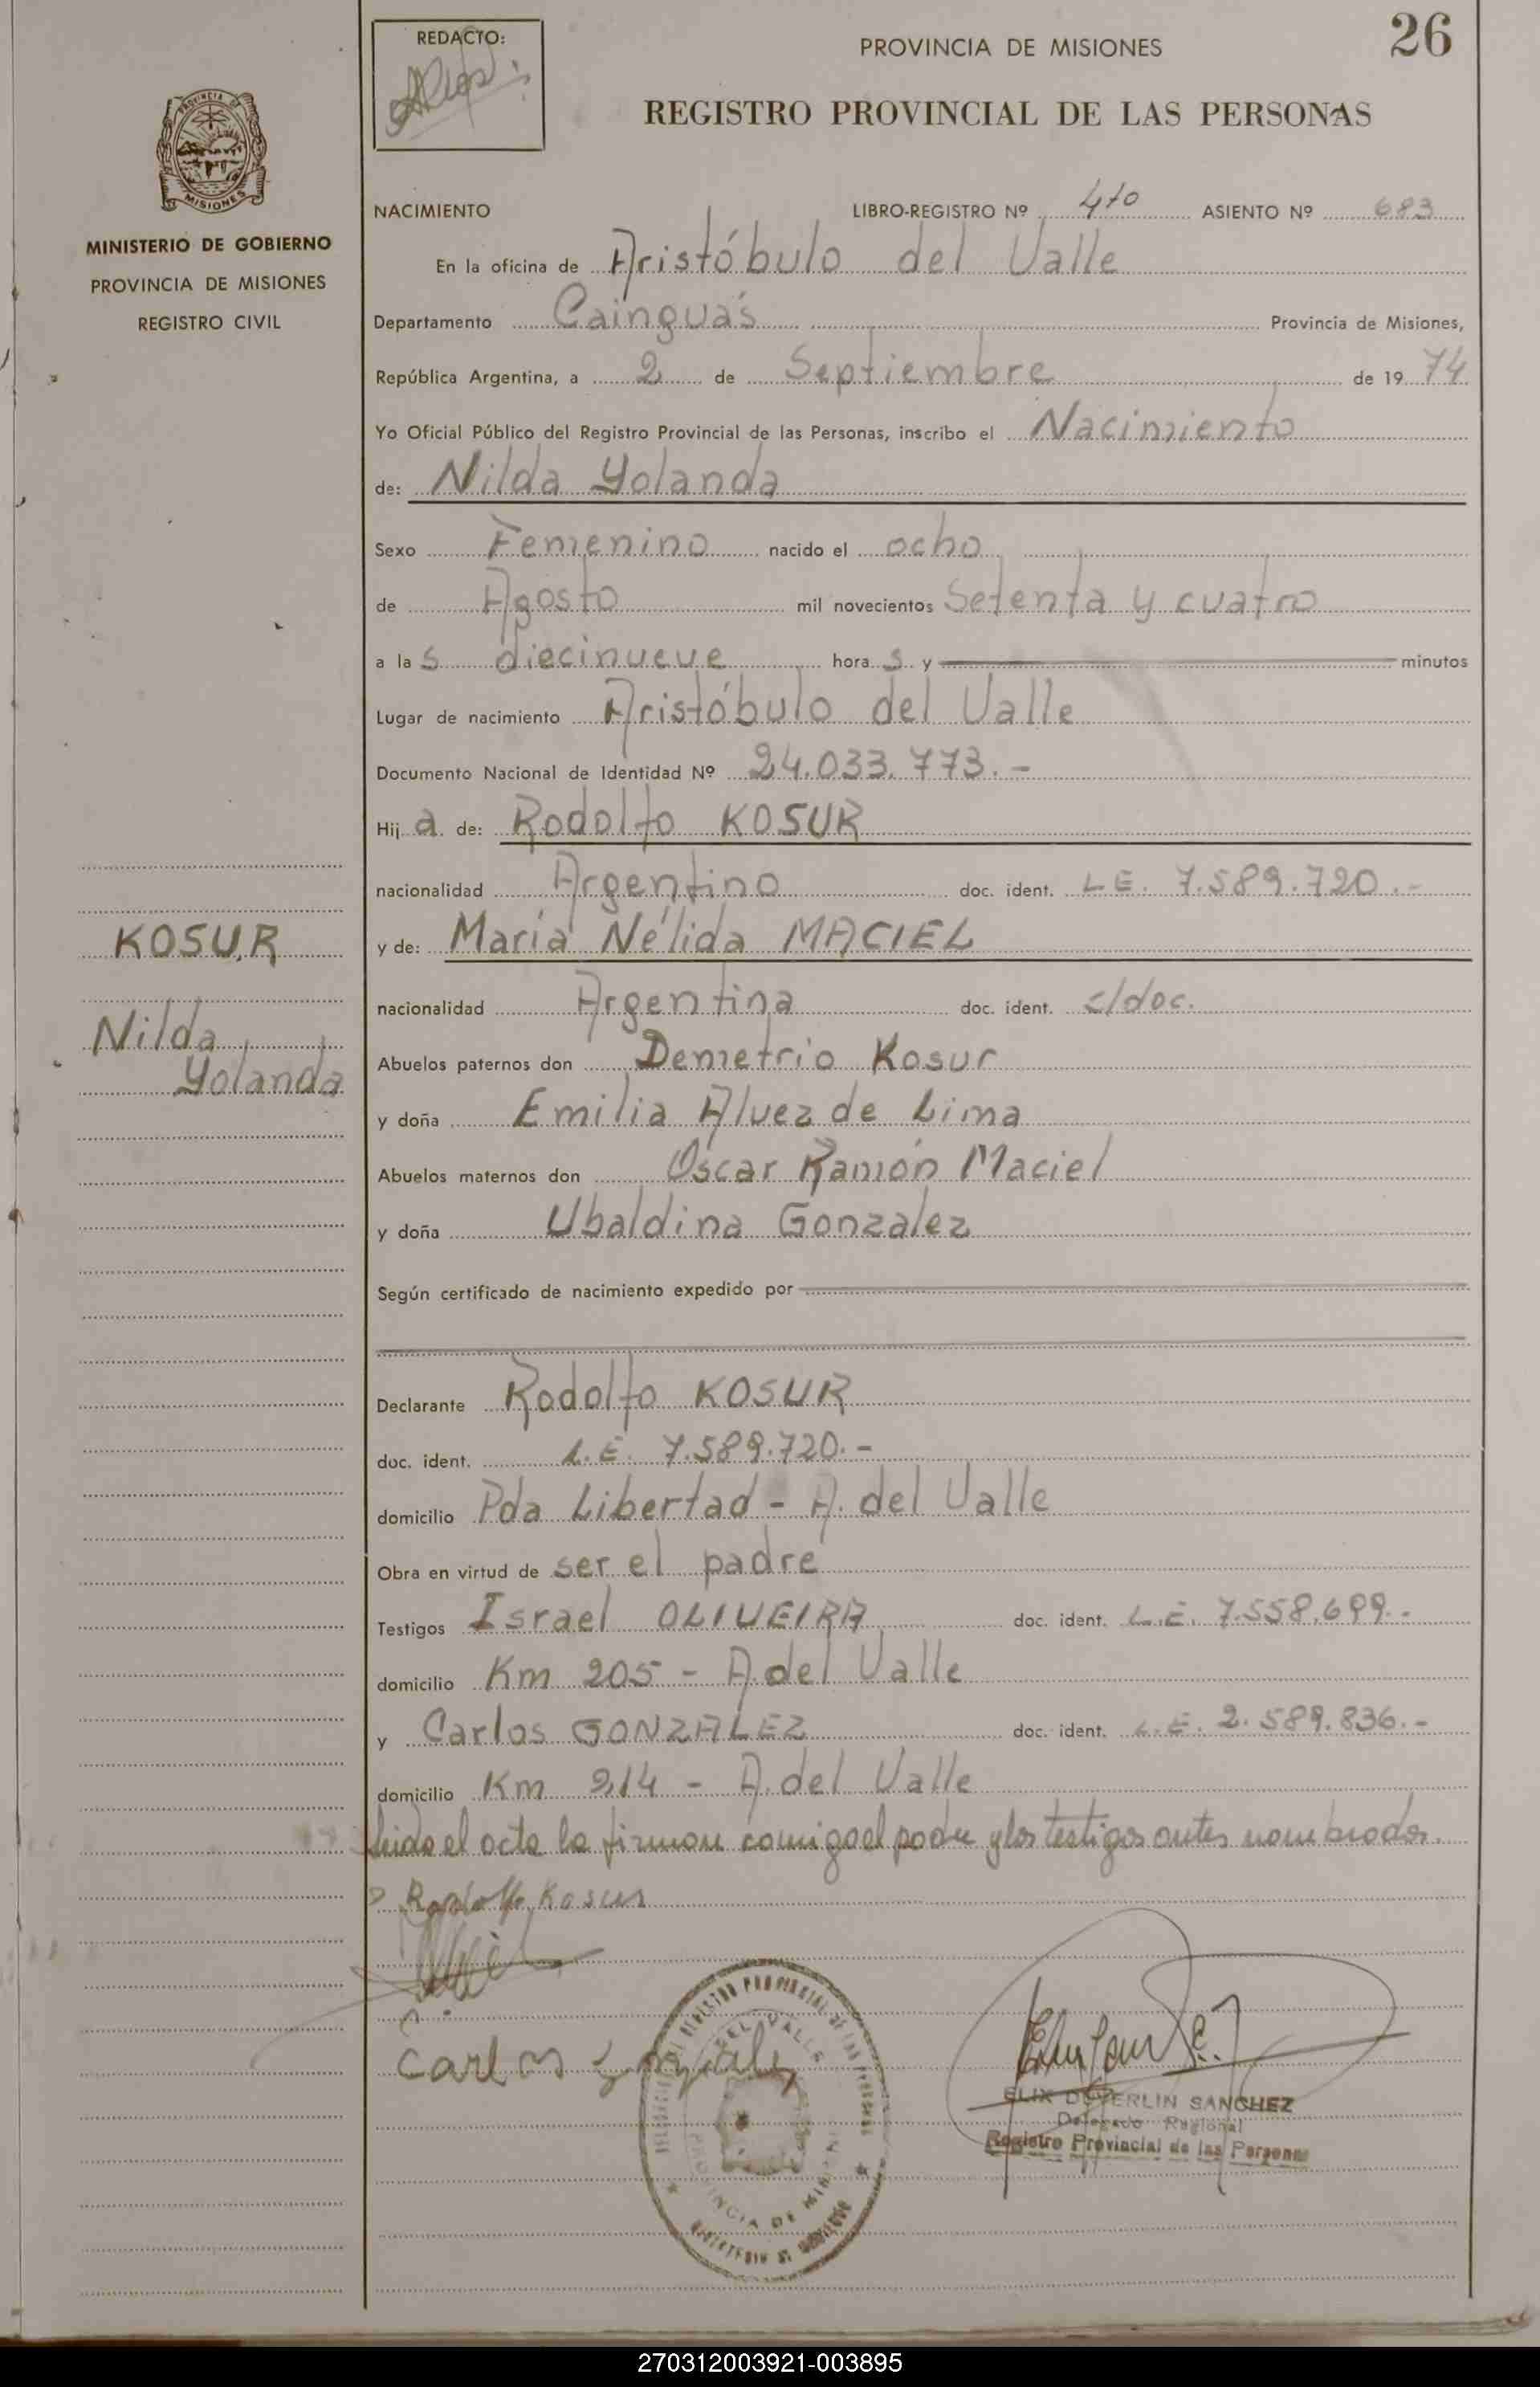 REDACTO:
PROVINCIA DE MISIONES
26
REGISTRO PROVINCIAL DE LAS PERSONAS
MISIONES
MINISTERIO DE GOBIERNO
PROVINCIA DE MISIONES
REGISTRO CIVIL
NACIMIENTO LIBRO-REGISTRO Nº 470 ASIENTO Nº 683
En la oficina de Aristóbulo del Valle
Departamento Cainguás Provincia de Misiones,
República Argentina, a 2 de Septiembre de 1974
Yo Oficial Público del Registro Provincial de las Personas, inscribo el Nacimiento
de: Nilda Yolanda
Sexo Femenino nacido el ocho
de Agosto mil novecientos Setenta y cuatro
a las diecinueve horas y minutos
Lugar de nacimiento Aristóbulo del Valle
Documento Nacional de Identidad Nº 24.033.773.-
Hija de: Rodolfo KOSUR
nacionalidad Argentino doc. ident. L.E. 7.589.720.-
y de: María Nélida MACIEL
nacionalidad Argentina doc. ident. c/doc.
Abuelos paternos don Demetrio Kosur
y doña Emilia Alvez de Lima
Abuelos maternos don Oscar Ramón Maciel
y doña Ubaldina Gonzalez
Según certificado de nacimiento expedido por
Declarante Rodolfo KOSUR
doc. ident. L.E. 7.589.720.-
domicilio Pda Libertad - A. del Valle
Obra en virtud de ser el padre
Testigos Israel OLIVEIRA doc. ident. L.E. 7.558.699.-
domicilio Km 205 - A. del Valle
y Carlos GONZALEZ doc. ident. L.E. 2.589.836.-
domicilio Km 214 - A. del Valle
leída el acta la firman conmigo el padre y los testigos antes nombrados.
Rodolfo Kosur
Carlos Gonzalez
KOSUR
Nilda
Yolanda
REGISTRO PROVINCIAL DE LAS PERSONAS
DEL VALLE
PROVINCIA DE MISIONES
MINISTERIO DE GOBIERNO
ELIX DUVERLIN SANCHEZ
Delegado Regional
Registro Provincial de las Personas
270312003921-003895